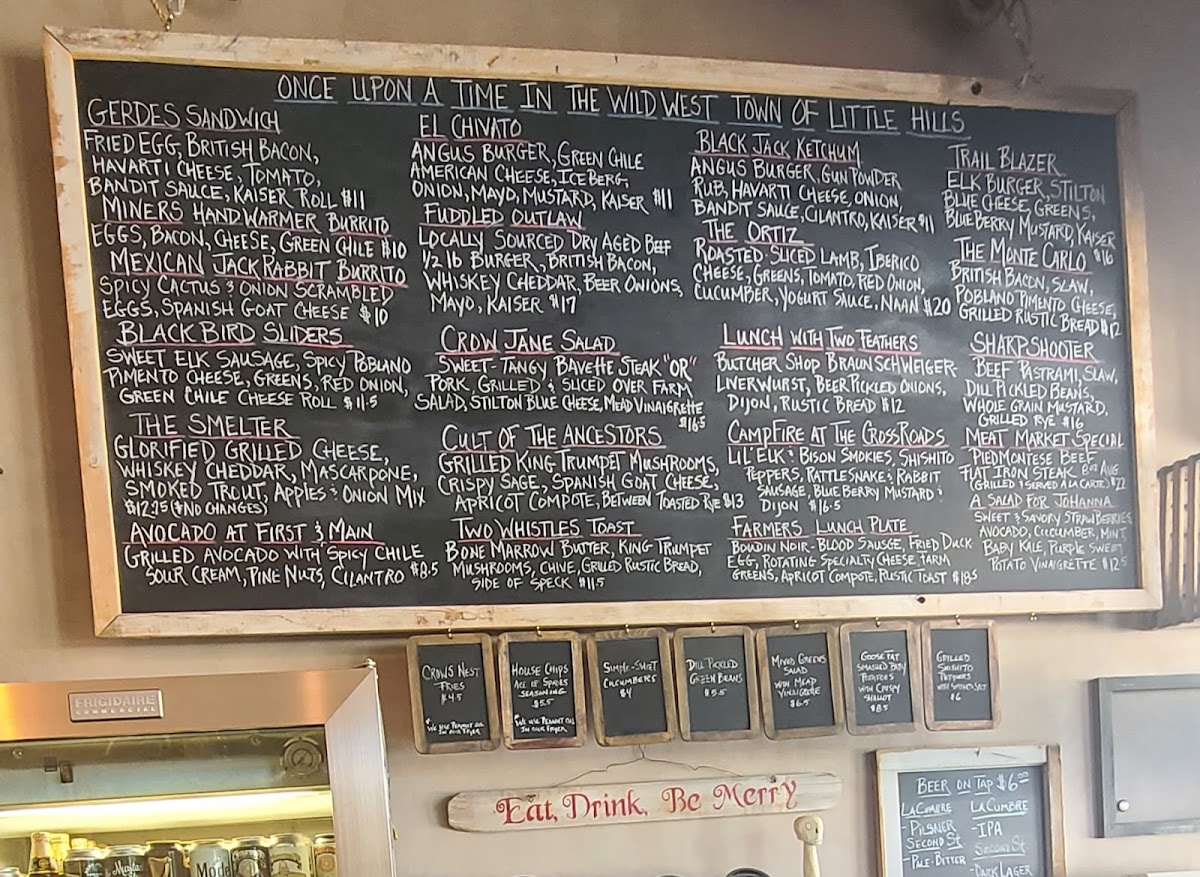 ONCE UPON A TIME IN THE WILD WEST TOWN OF LITTLE HILLS
GERDES SANDWICH
FRIED EGG, BRITISH BACON,
HAVARTI CHEESE, TOMATO,
BANDIT SAUCE, KAISER ROLL $11
MINERS HANDWARMER BURRITO
EGGS, BACON, CHEESE, GREEN CHILE $10
MEXICAN JACKRABBIT BURRITO
SPICY CACTUS & ONION SCRAMBLED
EGGS, SPANISH GOAT CHEESE $10
BLACK BIRD SLIDERS
SWEET ELK SAUSAGE, SPICY POBLANO
PIMENTO CHEESE, GREENS, RED ONION,
GREEN CHILE CHEESE ROLL $11.5
THE SMELTER
GLORIFIED GRILLED CHEESE,
WHISKEY CHEDDAR, MASCARPONE,
SMOKED TROUT, APPLES & ONION MIX
$12.75 (NO CHANGES)
AVOCADO AT FIRST & MAIN
GRILLED AVOCADO WITH SPICY CHILE
SOUR CREAM, PINE NUTS, CILANTRO $8.5
EL CHIVATO
ANGUS BURGER, GREEN CHILE
AMERICAN CHEESE, ICEBERG,
ONION, MAYO, MUSTARD, KAISER $11
FUDDLED OUTLAW
LOCALLY SOURCED DRY AGED BEEF
1/2 LB BURGER, BRITISH BACON,
WHISKEY CHEDDAR, BEER ONIONS,
MAYO, KAISER $17
CROW JANE SALAD
SWEET-TANGY BAVETTE STEAK "OR"
PORK, GRILLED & SLICED OVER FARM
SALAD, STILTON BLUE CHEESE, MEAD VINAIGRETTE
$16.5
CULT OF THE ANCESTORS
GRILLED KING TRUMPET MUSHROOMS,
CRISPY SAGE, SPANISH GOAT CHEESE,
APRICOT COMPOTE, BETWEEN TOASTED RYE $13
TWO WHISTLES TOAST
BONE MARROW BUTTER, KING TRUMPET
MUSHROOMS, CHIVE, GRILLED RUSTIC BREAD,
SIDE OF SPECK $11.5
BLACK JACK KETCHUM
ANGUS BURGER, GUN POWDER
RUB, HAVARTI CHEESE, ONION,
BANDIT SAUCE, CILANTRO, KAISER $11
THE ORTIZ
ROASTED SLICED LAMB, IBERICO
CHEESE, GREENS, TOMATO, RED ONION,
CUCUMBER, YOGURT SAUCE, NAAN $20
LUNCH WITH TWO FEATHERS
BUTCHER SHOP BRAUNSCHWEIGER-
LIVERWURST, BEER PICKLED ONIONS,
DIJON, RUSTIC BREAD $12
CAMPFIRE AT THE CROSSROADS
LIL' ELK & BISON SMOKIES, SHISHITO
PEPPERS, RATTLESNAKE & RABBIT
SAUSAGE, BLUE BERRY MUSTARD &
DIJON $16.5
FARMERS LUNCH PLATE
BOUDIN NOIR-BLOOD SAUSGE, FRIED DUCK
EGG, ROTATING SPECIALTY CHEESE, FARM
GREENS, APRICOT COMPOTE, RUSTIC TOAST $18.5
TRAIL BLAZER
ELK BURGER, STILTON
BLUE CHEESE GREENS,
BLUEBERRY MUSTARD, KAISER
$16
THE MONTE CARLO
BRITISH BACON, SLAW,
POBLANO PIMENTO CHEESE,
GRILLED RUSTIC BREAD $12
SHARPSHOOTER
BEEF PASTRAMI, SLAW,
DILL PICKLED BEANS,
WHOLE GRAIN MUSTARD,
GRILLED RYE $16
MEAT MARKET SPECIAL
PIEDMONTESE BEEF
FLAT IRON STEAK 8OZ AVG
(GRILLED & SERVED A LA CARTE) $22
A SALAD FOR JOHANNA
SWEET & SAVORY STRAWBERRIES
AVOCADO, CUCUMBER, MINT,
BABY KALE, PURPLE SWEET
POTATO VINAIGRETTE $12.5
CROWS NEST
FRIES
$4.5
WE USE PEANUT OIL
IN OUR FRYER
HOUSE CHIPS
ACE OF SPADES
SEASONING
$5.5
WE USE PEANUT OIL
IN OUR FRYER
CUCUMBERS
$4
DILL PICKLED
GREEN BEANS
$5.5
MIXED GREENS
SALAD
WITH MEAD
VINAIGRETTE
$6.5
GOOSE FAT
SMASHED BABY
POTATOES
WITH CRISPY
SHALLOT
$8.5
GRILLED
SHISHITO
PEPPERS
$6
FRIGIDAIRE
COMMERCIAL
Eat, Drink, Be Merry
BEER ON TAP $6.00
LA CUMBRE
-PILSNER
SECOND ST
-PALE-BITTER
LA CUMBRE
-IPA
SECOND ST
-DARK LAGER
Mode